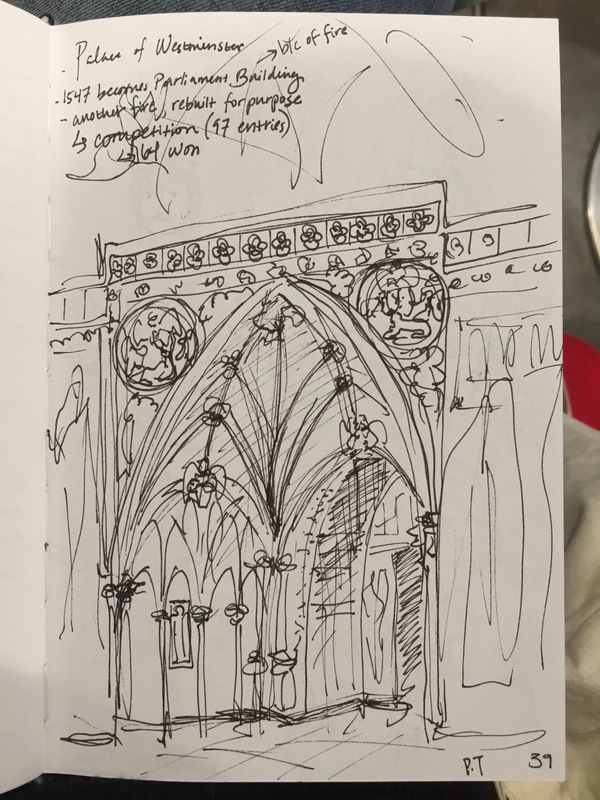 - Palace of Westminster → b/c of fire
- 1547 becomes Parliament Building
- another fire, rebuilt for purpose
↳ competition (97 entries)
↳ won
P.T 39